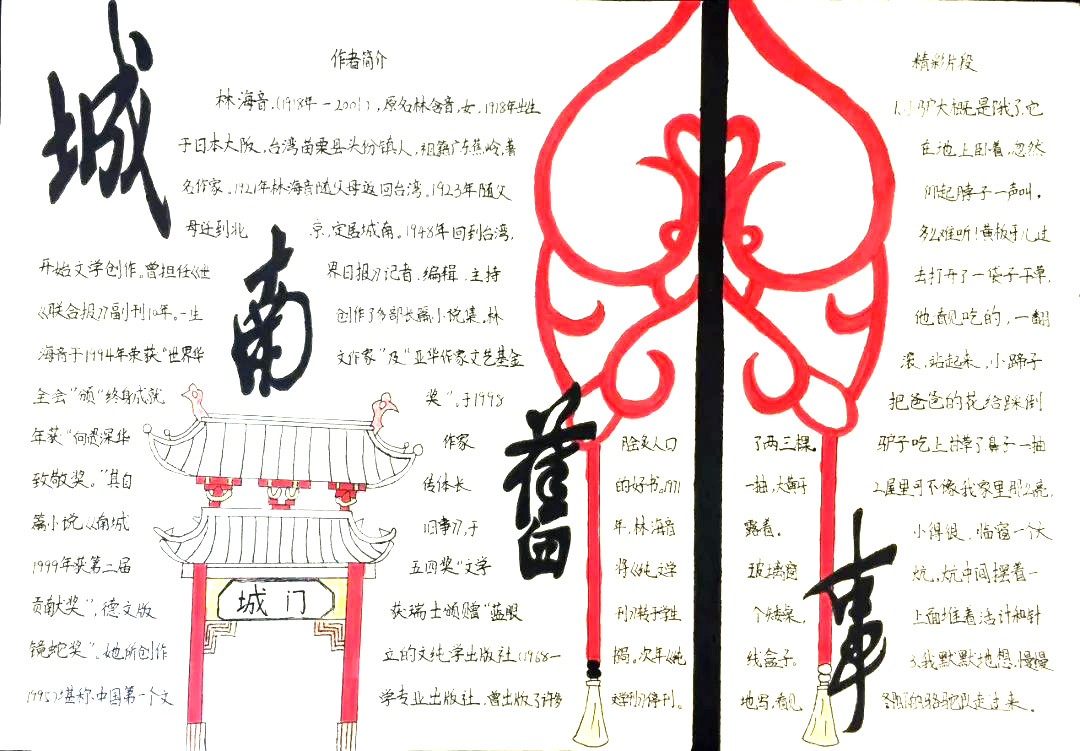 城南舊事
作者简介
林海音,(1918年-2001),原名林含音,女,1918年出生
于日本大阪,台湾苗栗县头份镇人,祖籍广东蕉岭,著
名作家。1921年林海音随父母返回台湾。1923年随父
母迁到北京,定居城南。1948年回到台湾,
开始文学创作,曾担任《世界日报》记者、编辑,主持
《联合报》副刊10年。一生创作了多部长篇小说集。林
海音于1994年荣获“世界华文作家”及“亚华作家文艺基金
全会”颁“终身成就奖”,于1998
年获“向资深华作家
致敬奖。”其自传体长
篇小说《南城旧事》,于
1999年获第二届五四奖“文学
贡献大奖”,德文版获瑞士颁赠“蓝眼
镜蛇奖”。她所创作立的文纯学出版社(1968—
1995)堪称中国第一个文学专业出版社,曾出版了许多
脍炙人口
的好书。1971
年,林海音
将《纯文学
刊》转于学生
揭。次年《纯
文学刊》停刊。
城门
精彩片段
1.小驴大概是饿了,它
在地上卧着,忽然
仰起脖子一声叫,
多么难听!黄板牙儿过
去打开了一袋子干草,
他看见吃的,一翻
滚,站起来,小蹄子
把爸爸的花给踩倒
了两三棵。驴子吃上干草了,鼻子一抽
一抽,大黄牙
露着。
2.屋里可不像我家里那么亮,
玻璃窗小得很,临窗一个大
炕,炕中间摆着一
个矮桌,上面堆着活计和针
线盒子。
3.我默默地想,慢慢
地写,看见冬阳下的骆驼队走过来。